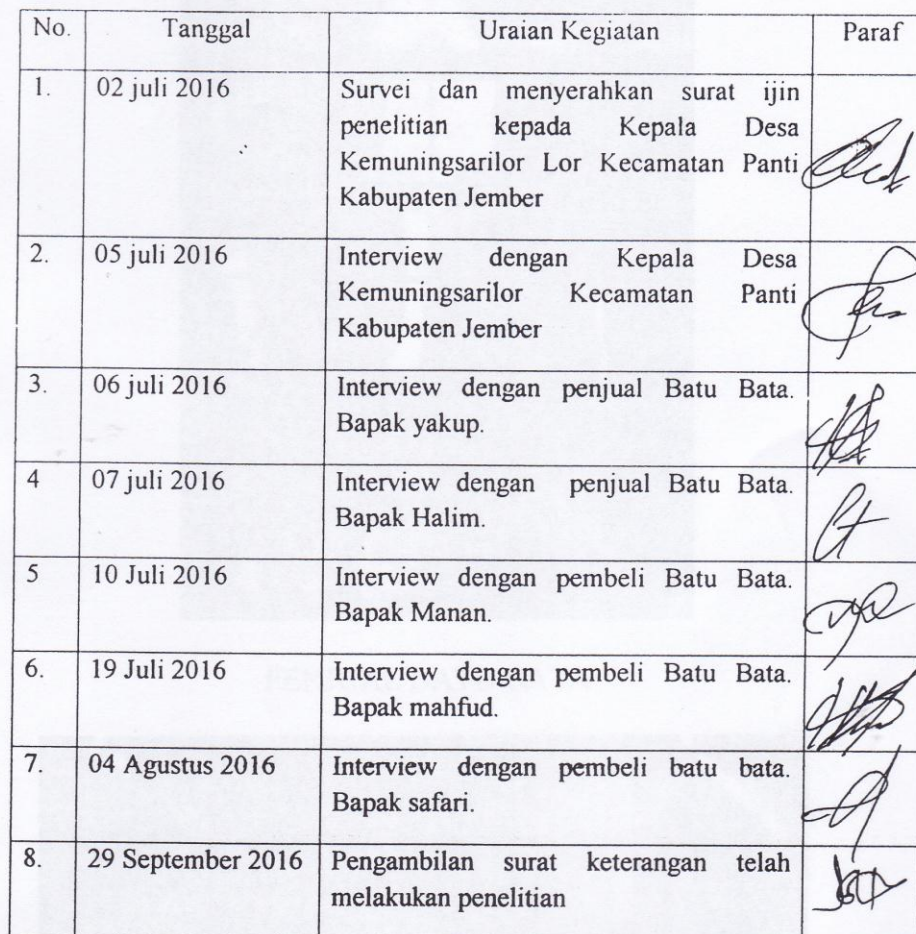 No. Tanggal Uraian Kegiatan Paraf
1. 02 juli 2016 Survei dan menyerahkan surat ijin
penelitian kepada Kepala Desa
Kemuningsarilor Lor Kecamatan Panti
Kabupaten Jember
2. 05 juli 2016 Interview dengan Kepala Desa
Kemuningsarilor Kecamatan Panti
Kabupaten Jember
3. 06 juli 2016 Interview dengan penjual Batu Bata.
Bapak yakup.
4 07 juli 2016 Interview dengan penjual Batu Bata.
Bapak Halim.
5 10 Juli 2016 Interview dengan pembeli Batu Bata.
Bapak Manan.
6. 19 Juli 2016 Interview dengan pembeli Batu Bata.
Bapak mahfud.
7. 04 Agustus 2016 Interview dengan pembeli batu bata.
Bapak safari.
8. 29 September 2016 Pengambilan surat keterangan telah
melakukan penelitian